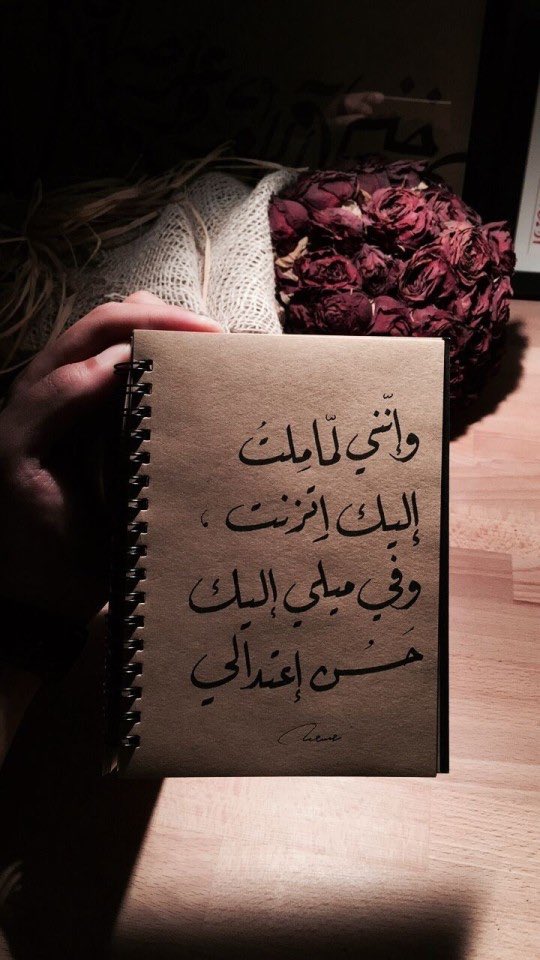 وإنّني لمّا مِلتُ
إليك اِتزنت ،
وفي ميلي إليك
حَسُن إعتدالي